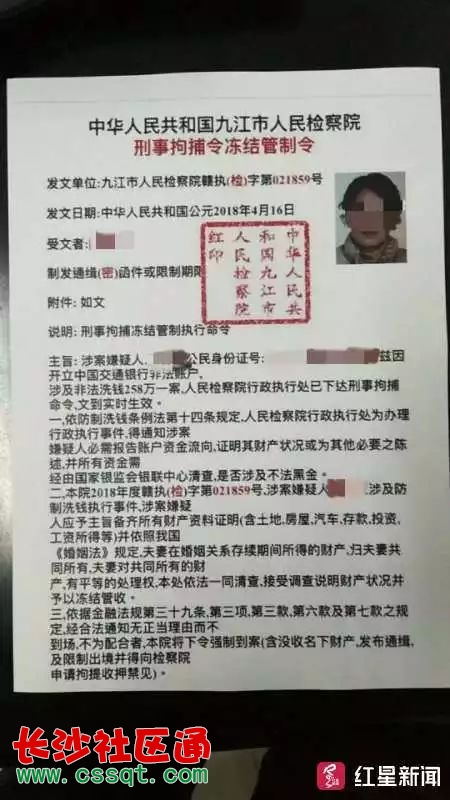 中华人民共和国九江市人民检察院
刑事拘捕令冻结管制令
发文单位:九江市人民检察院赣执(检)字第021859号
发文日期:中华人民共和国公元2018年4月16日
受文者:
制发通缉(密)函件或限制期限
附件: 如文
说明: 刑事拘捕冻结管制执行命令
中华人民共
和国九江市
人民检察院
红印
主旨: 涉案嫌疑人, 公民身份证号: 兹因
开立中国交通银行非法账户,
涉及非法洗钱258万一案,人民检察院行政执行处已下达刑事拘捕
命令,文到实时生效。
一,依防制洗钱条例法第十四条规定,人民检察院行政执行处为办理
行政执行事件,得通知涉案
嫌疑人必需报告账户资金流向,证明其财产状况或为其他必要之陈
述,并所有资金需
经由国家银监会银联中心清查,是否涉及不法黑金。
二,本院2018年度赣执(检)字第021859号,涉案嫌疑人 涉及防
制洗钱执行事件,涉案嫌疑
人应予主旨备齐所有财产资料证明(含土地,房屋,汽车,存款,投资,
工资所得等)并依照我国
《婚姻法》规定,夫妻在婚姻关系存续期间所得的财产,归夫妻共
同所有,夫妻对共同所有的财
产,有平等的处理权,本处依法一同清查,接受调查说明财产状况并
予以冻结管收。
三,依据金融法规第三十九条,第三项,第三款,第六款及第七款之规
定,经合法通知无正当理由而不
到场,不为配合者,本院将下令强制到案(含没收名下财产,发布通缉,
及限制出境并得向检察院
申请拘提收押禁见)。
长沙社区通
www.cssqt.com
红星新闻